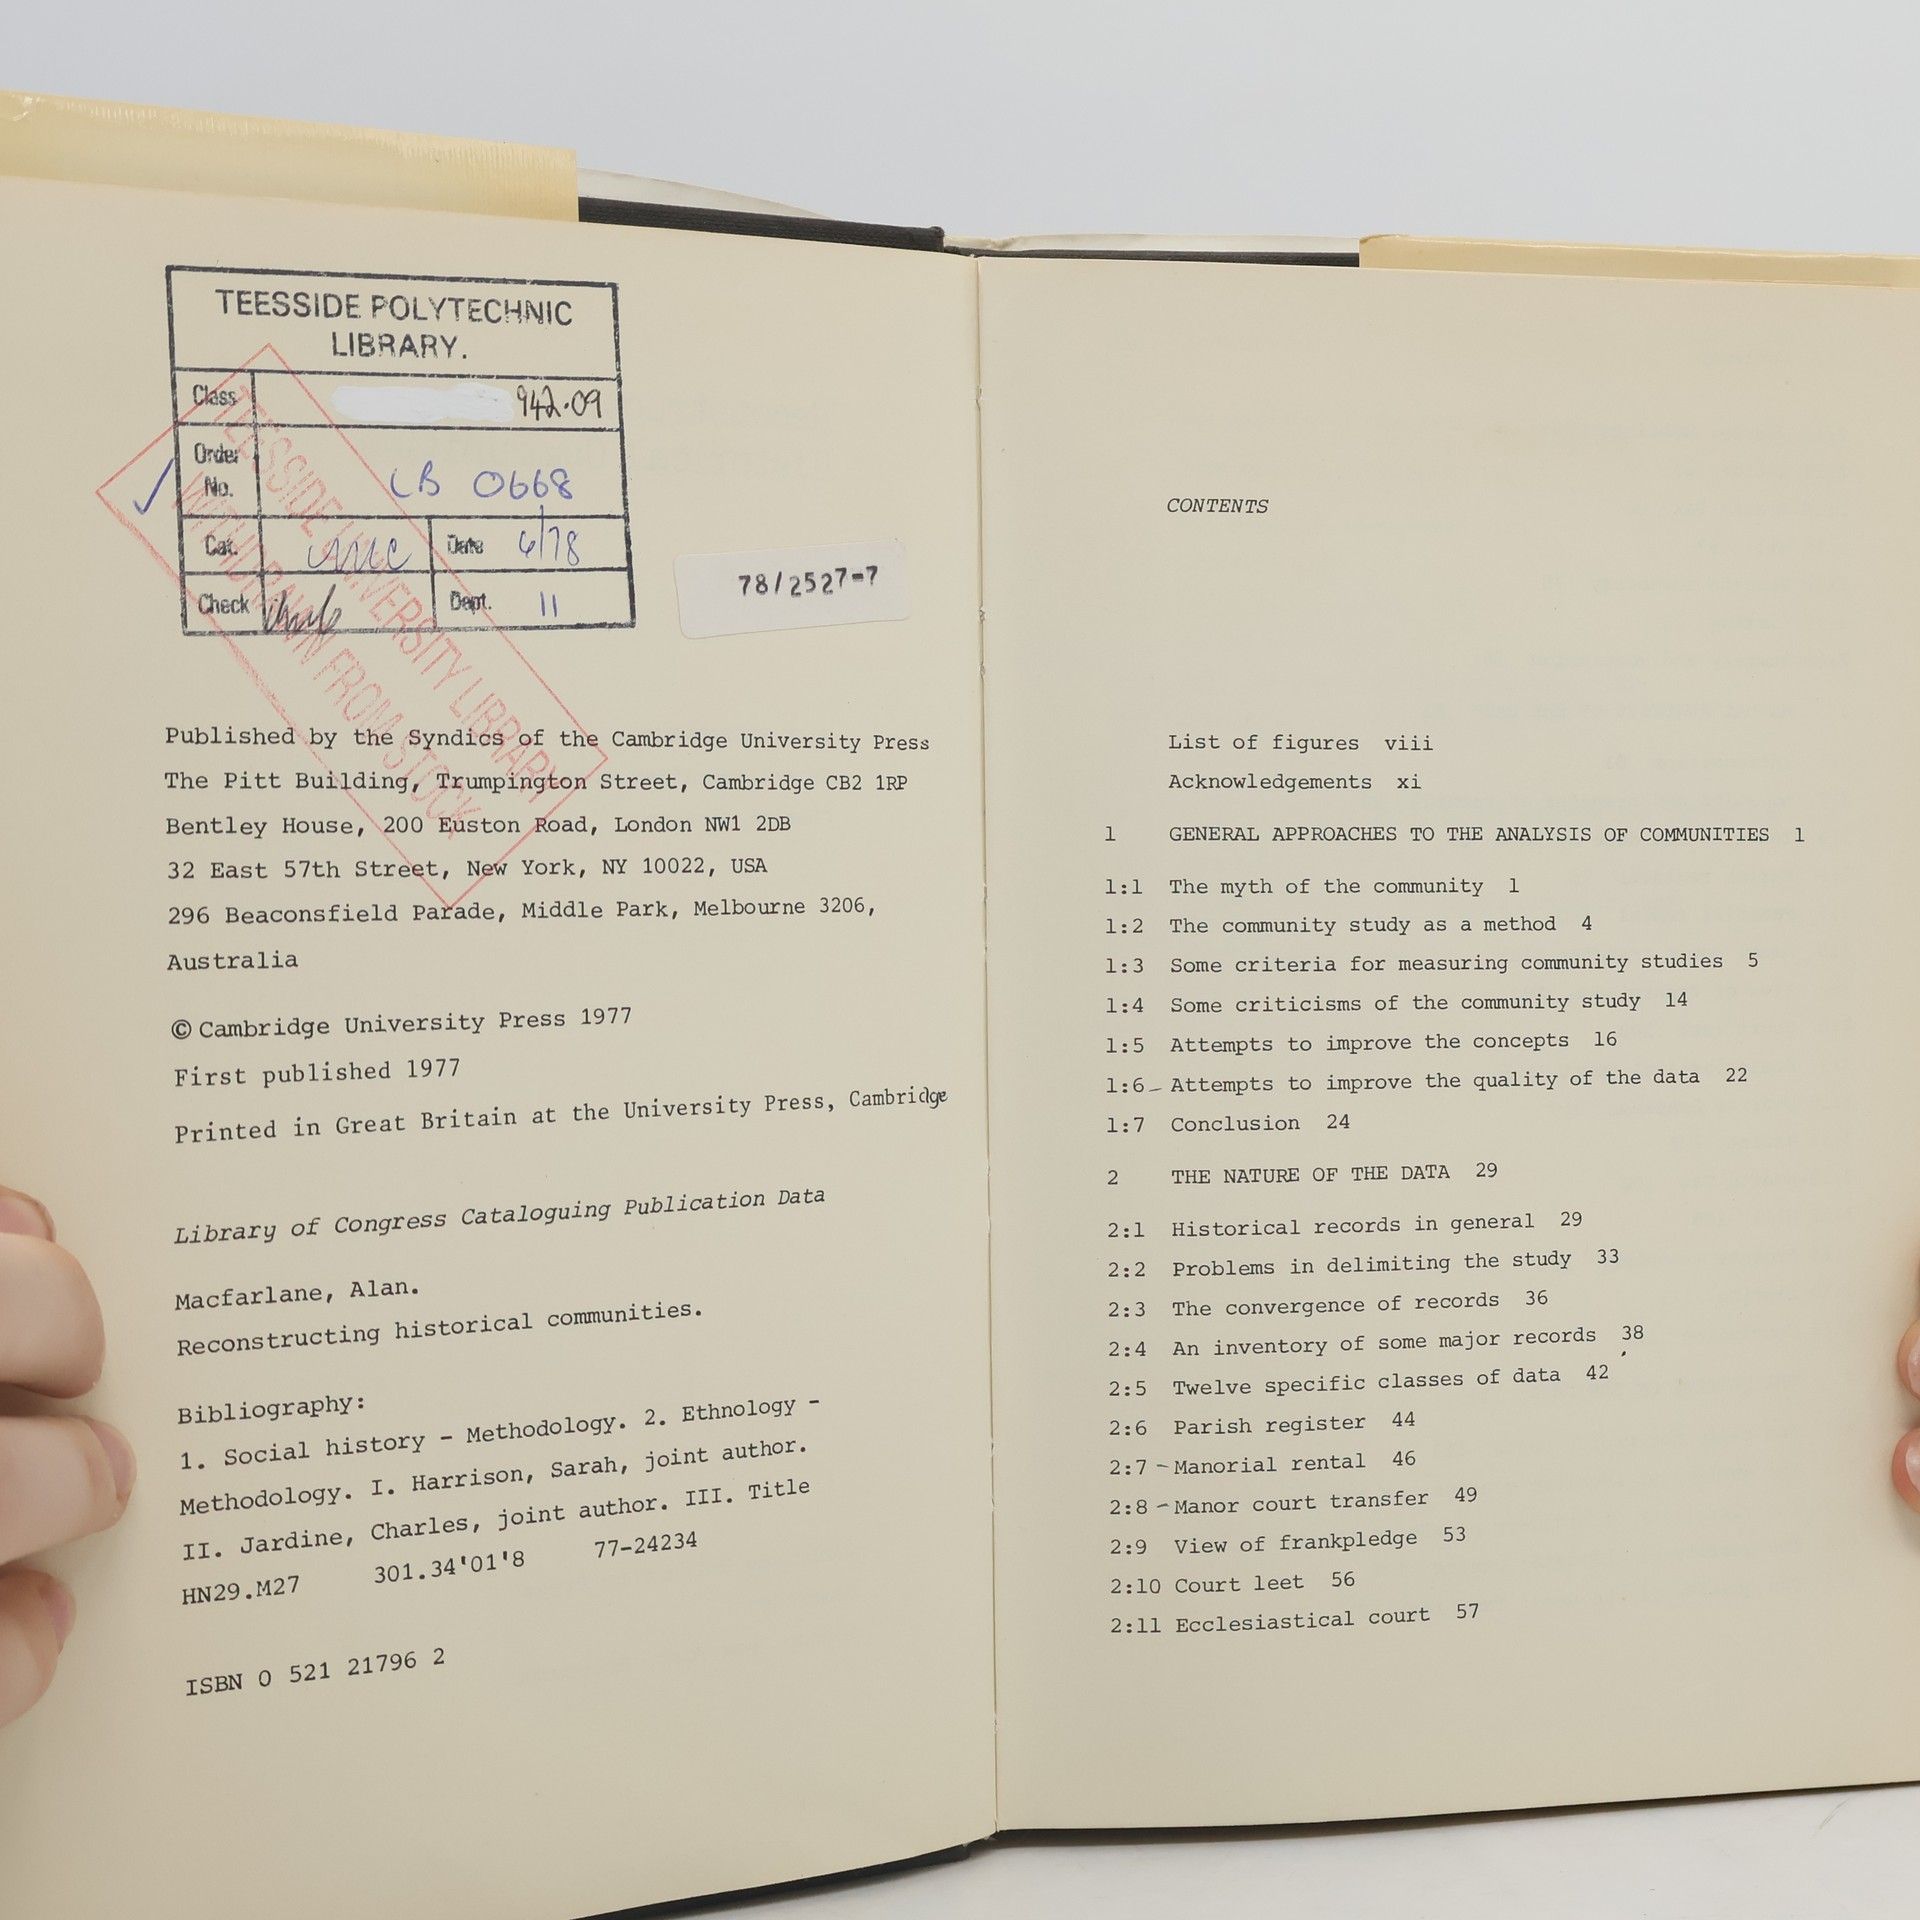 TEESSIDE POLYTECHNIC
LIBRARY.
Class 942.09
Order
No. LB 0668
Cat. Date 4/78
Check Dept. 11
TEESSIDE UNIVERSITY LIBRARY
WITHDRAWN FROM STOCK
78/2527-7
Published by the Syndics of the Cambridge University Press
The Pitt Building, Trumpington Street, Cambridge CB2 1RP
Bentley House, 200 Euston Road, London NW1 2DB
32 East 57th Street, New York, NY 10022, USA
296 Beaconsfield Parade, Middle Park, Melbourne 3206,
Australia
© Cambridge University Press 1977
First published 1977
Printed in Great Britain at the University Press, Cambridge
Library of Congress Cataloguing Publication Data
Macfarlane, Alan.
Reconstructing historical communities.
Bibliography:
1. Social history - Methodology. 2. Ethnology -
Methodology. I. Harrison, Sarah, joint author.
II. Jardine, Charles, joint author. III. Title
HN29.M27 301.34'01'8 77-24234
ISBN 0 521 21796 2
CONTENTS
List of figures viii
Acknowledgements xi
1 GENERAL APPROACHES TO THE ANALYSIS OF COMMUNITIES 1
1:1 The myth of the community 1
1:2 The community study as a method 4
1:3 Some criteria for measuring community studies 5
1:4 Some criticisms of the community study 14
1:5 Attempts to improve the concepts 16
1:6 Attempts to improve the quality of the data 22
1:7 Conclusion 24
2 THE NATURE OF THE DATA 29
2:1 Historical records in general 29
2:2 Problems in delimiting the study 33
2:3 The convergence of records 36
2:4 An inventory of some major records 38
2:5 Twelve specific classes of data 42
2:6 Parish register 44
2:7 Manorial rental 46
2:8 Manor court transfer 49
2:9 View of frankpledge 53
2:10 Court leet 56
2:11 Ecclesiastical court 57